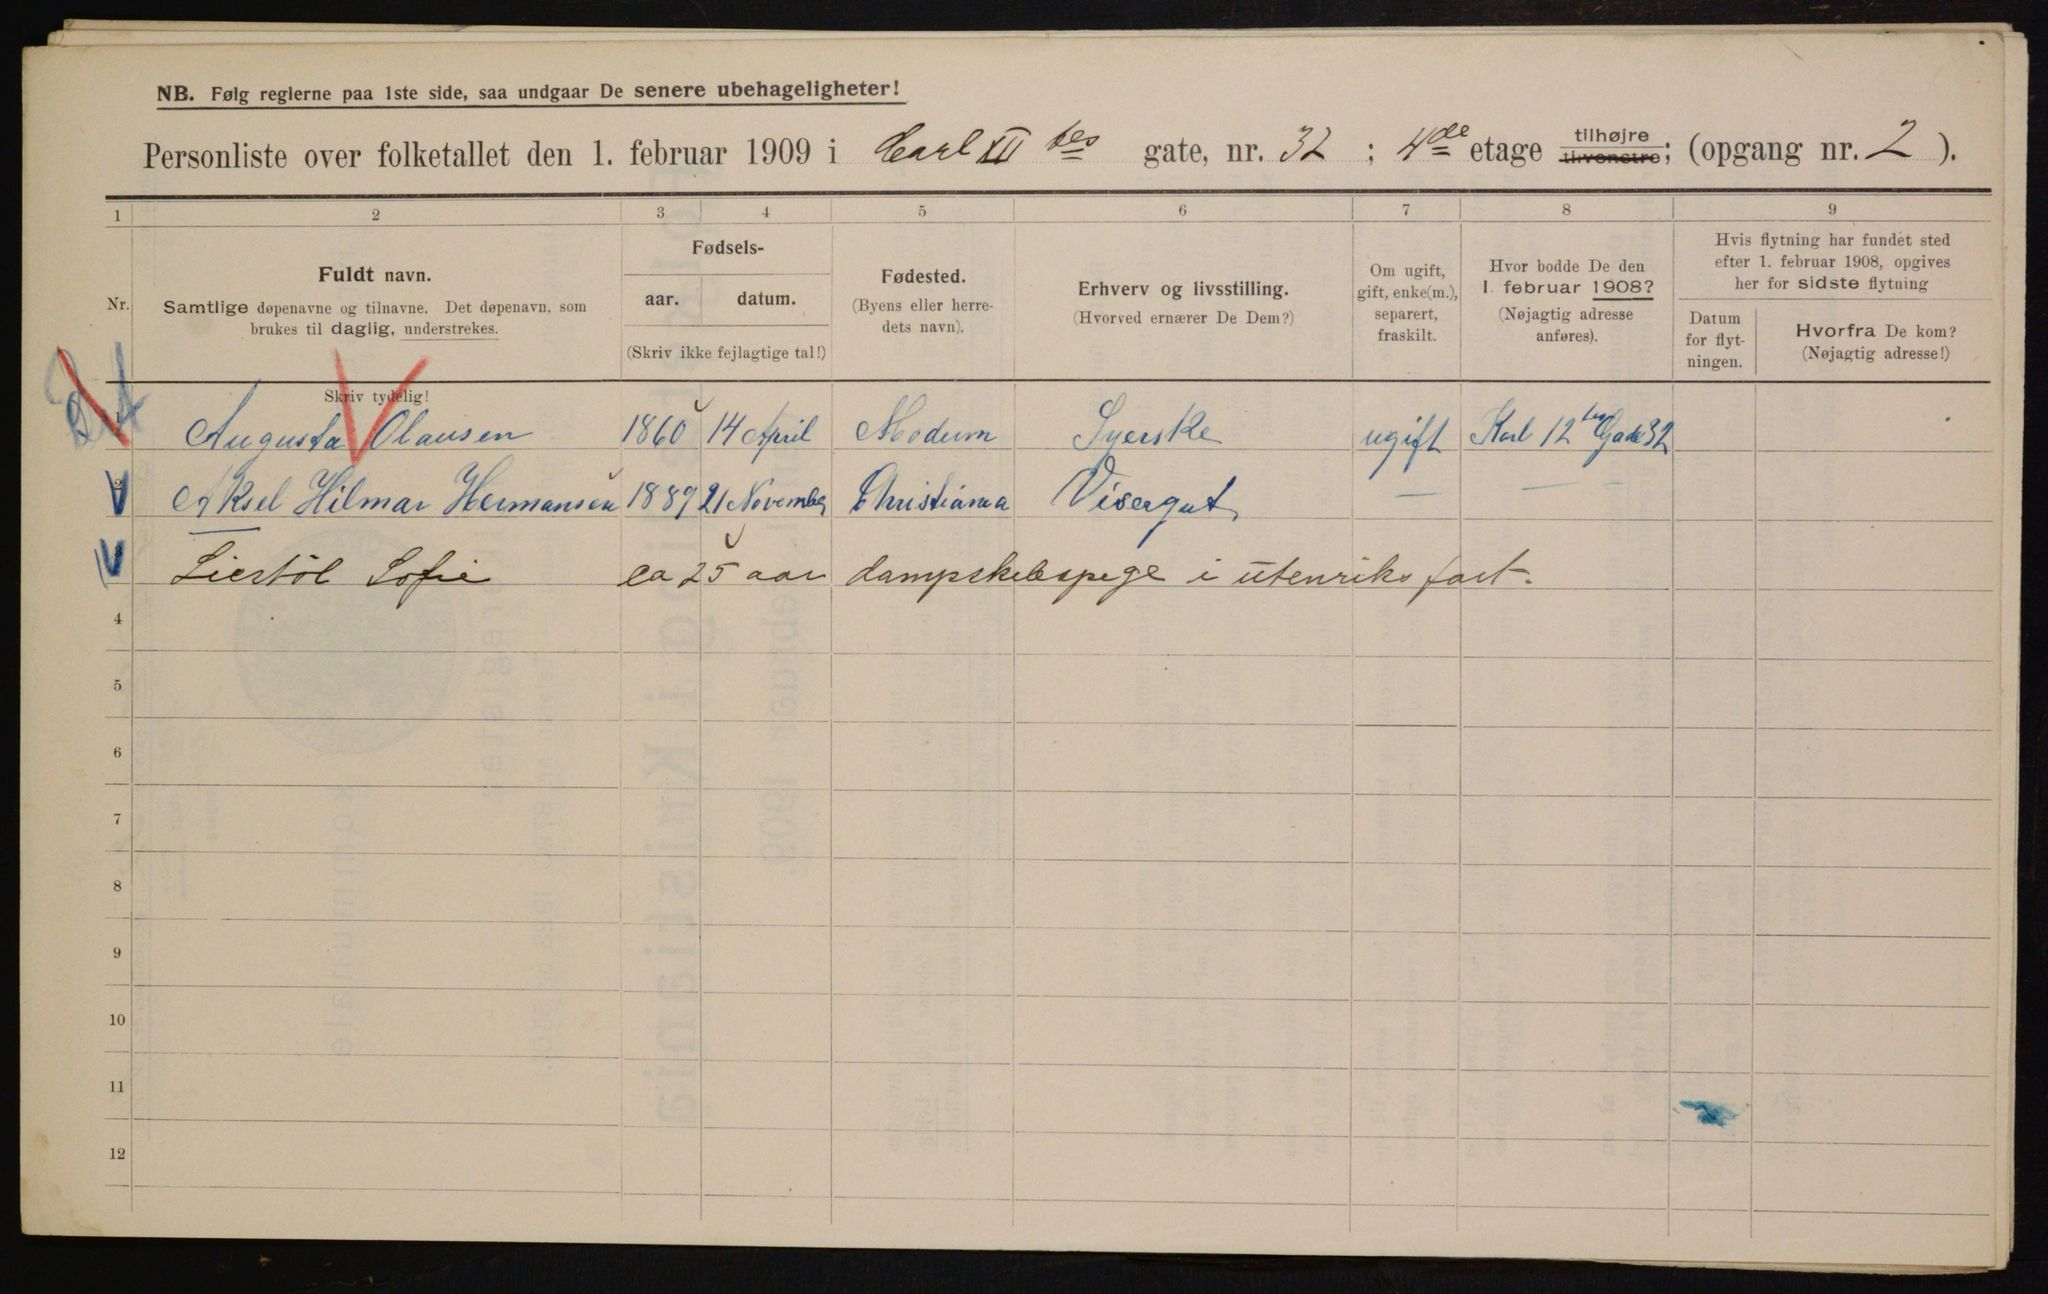 NB. Følg reglerne paa 1ste side, saa undgaar De senere ubehageligheter!
Personliste over folketallet den 1. februar 1909 i Carl XII tes gate, nr. 32 ; 4de etage tilhøjre tilvenstre; (opgang nr. 2 ).
1 2 3 4 5 6 7 8 9
Nr.
Fuldt navn.
Samtlige døpenavne og tilnavne. Det døpenavn, som
brukes til daglig, understrekes.
Skriv tydelig!
Fødsels-
aar. datum.
(Skriv ikke fejlagtige tal!)
Fødested.
(Byens eller herre-
dets navn).
Erhverv og livsstilling.
(Hvorved ernærer De Dem?)
Om ugift,
gift, enke(m.),
separert,
fraskilt.
Hvor bodde De den
1. februar 1908?
(Nøjagtig adresse
anføres).
Hvis flytning har fundet sted
efter 1. februar 1908, opgives
her for sidste flytning
Datum
for flyt-
ningen.
Hvorfra De kom?
(Nøjagtig adresse!)
1 Augusta Olausen 1860 14 April Modum Syerske ugift Karl 12 tes Gade 32
2 Aksel Hilmar Hermansen 1889 21 November Christiania Visergut — — —
3 Liestöl Sofie ca 25 aar dampskibspige i utenriks fart.
4
5
6
7
8
9
10
11
12